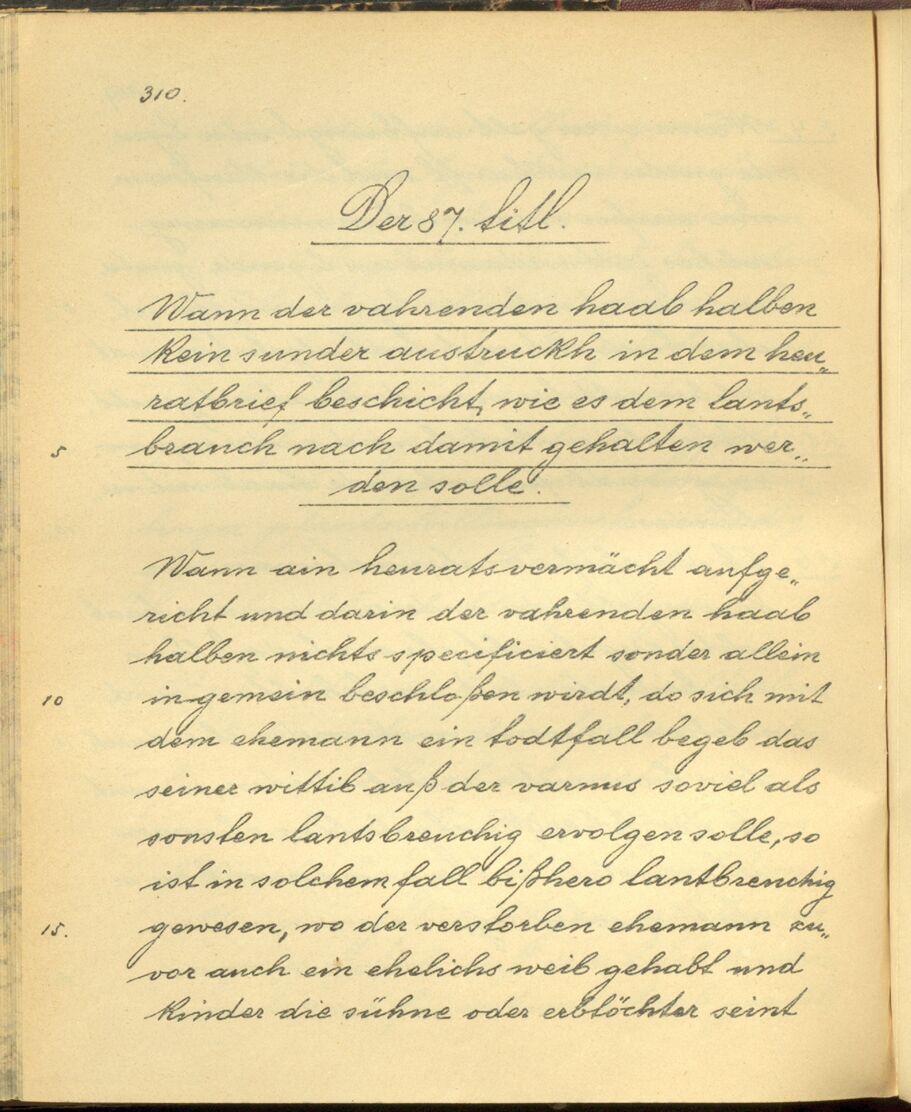 310.
Der 87. titl.
Wann der vahrenden haab halben
kein sunder austruckh in dem heu„
ratbrief beschicht, wie es dem lants„
5 brauch nach damit gehalten wer„
den solle.
Wann ain heuratsvermächt aufge„
richt und darin der vahrenden haab
halben nichts specificiert sonder allein
10 in gemein beschloßen wirdt, do sich mit
dem ehemann ein todtfall begeb das
seiner wittib auß der varnus soviel als
sonsten lantsbreuchig ervolgen solle, so
ist in solchem fall bißhero lantbreuchig
15. gewesen, wo der verstorben ehemann zu„
vor auch ein ehelichs weib gehabt und
kinder die sühne oder erbtöchter seint